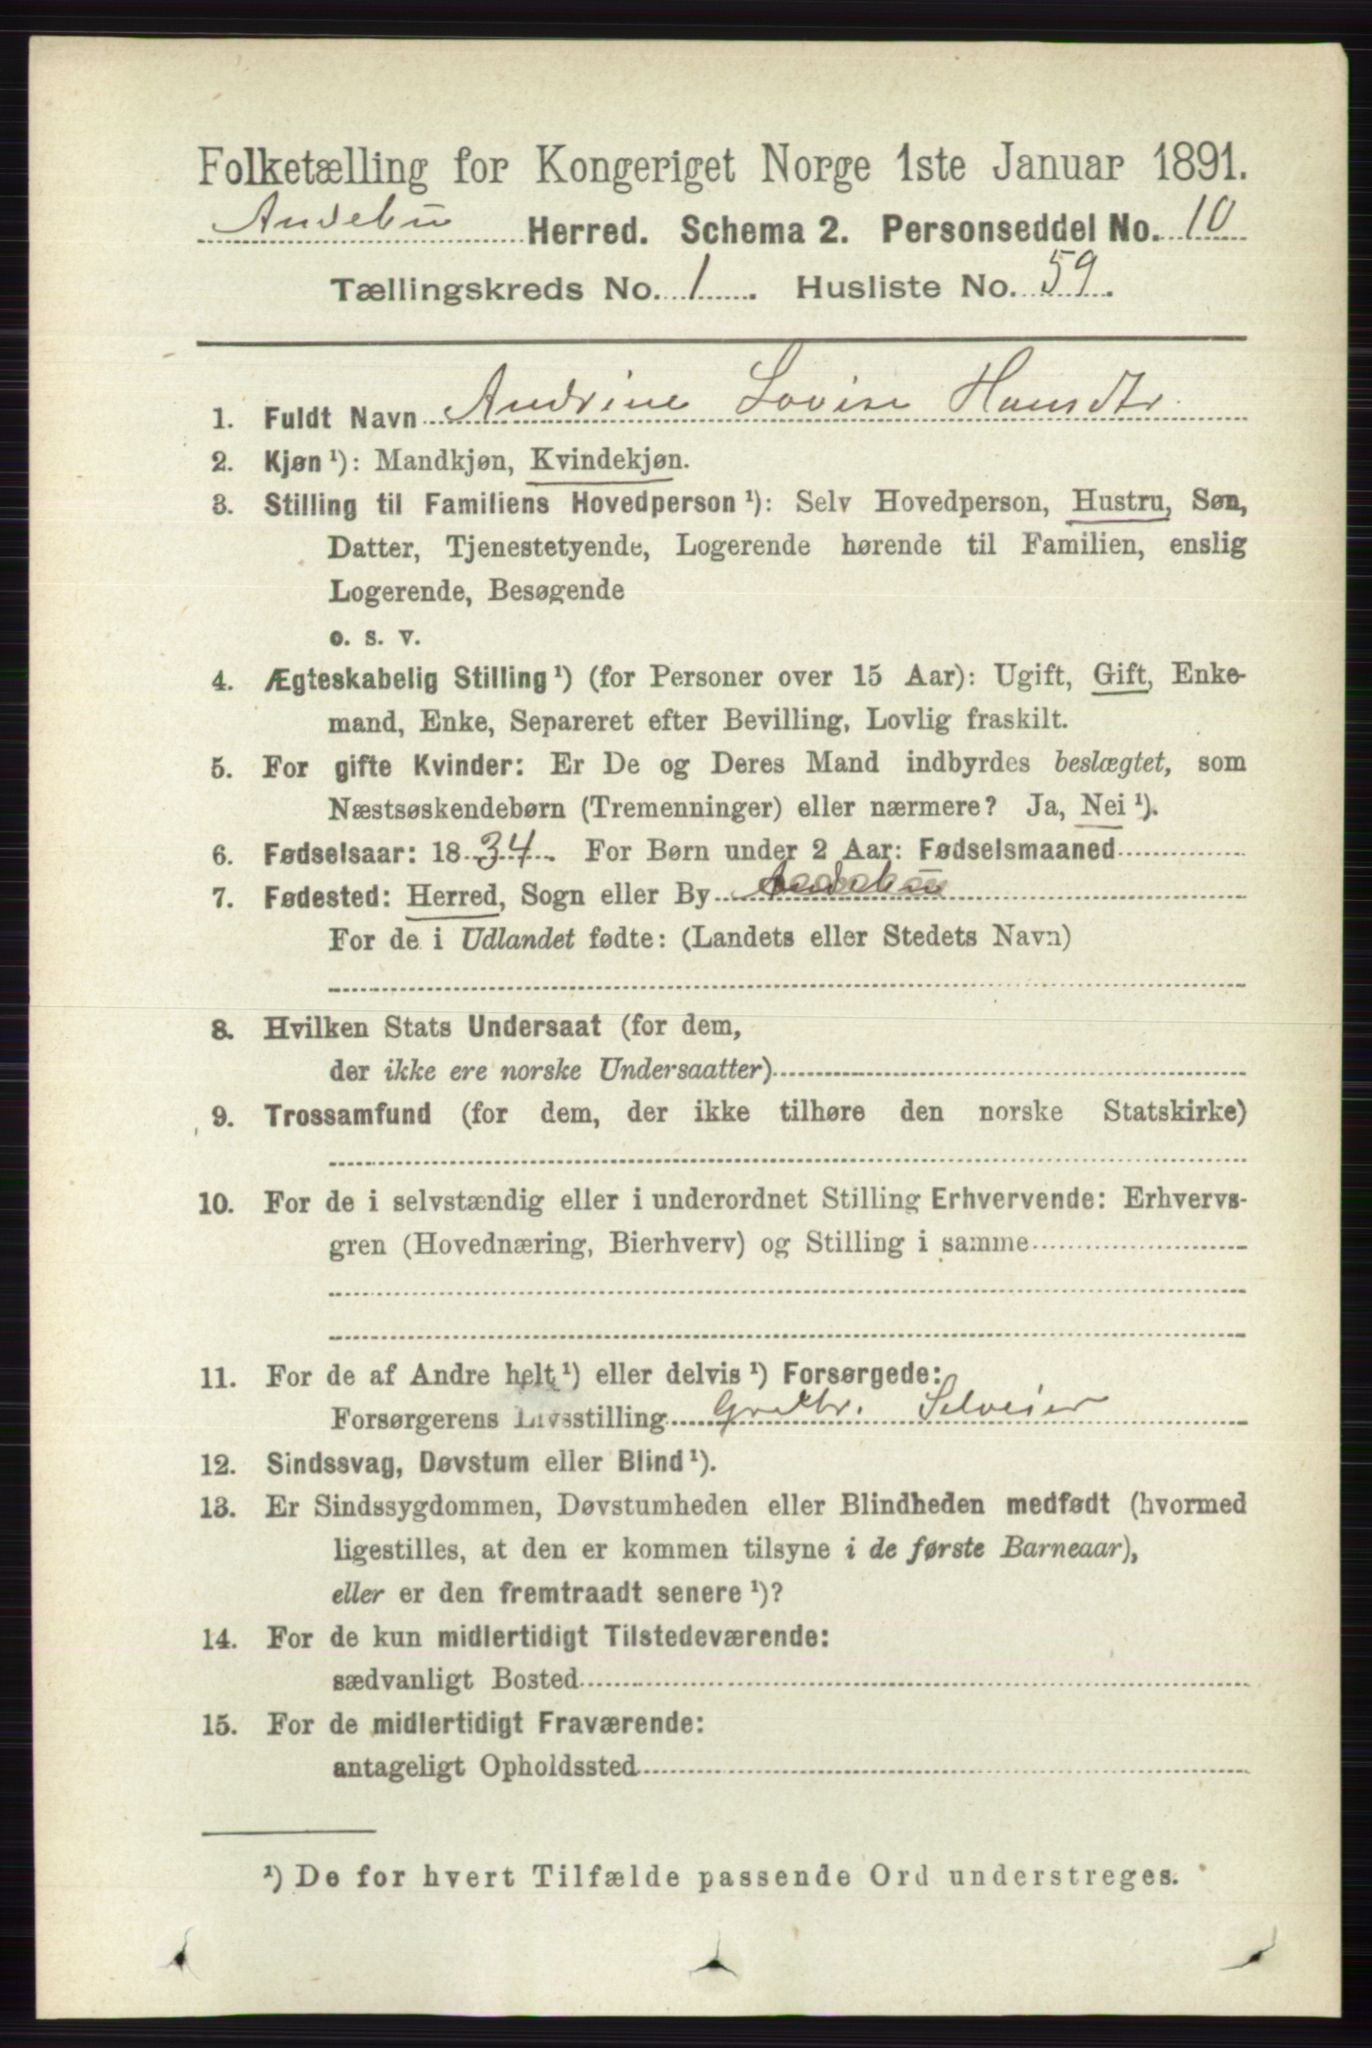 Folketælling for Kongeriget Norge 1ste Januar 1891.
Andebu Herred. Schema 2. Personseddel No. 10
Tællingskreds No. 1. Husliste No. 59.
1. Fuldt Navn Andrine Lovise Hansdtr.
2. Kjøn ¹): Mandkjøn, Kvindekjøn.
3. Stilling til Familiens Hovedperson ¹): Selv Hovedperson, Hustru, Søn,
Datter, Tjenestetyende, Logerende hørende til Familien, enslig
Logerende, Besøgende
o. s. v.
4. Ægteskabelig Stilling ¹) (for Personer over 15 Aar): Ugift, Gift, Enke-
mand, Enke, Separeret efter Bevilling, Lovlig fraskilt.
5. For gifte Kvinder: Er De og Deres Mand indbyrdes beslægtet, som
Næstsøskendebørn (Tremenninger) eller nærmere? Ja, Nei ¹).
6. Fødselsaar: 1834. For Børn under 2 Aar: Fødselsmaaned
7. Fødested: Herred, Sogn eller By Andebu
For de i Udlandet fødte: (Landets eller Stedets Navn)
8. Hvilken Stats Undersaat (for dem,
der ikke ere norske Undersaatter)
9. Trossamfund (for dem, der ikke tilhøre den norske Statskirke)
10. For de i selvstændig eller i underordnet Stilling Erhvervende: Erhvervs-
gren (Hovednæring, Bierhverv) og Stilling i samme
11. For de af Andre helt ¹) eller delvis ¹) Forsørgede:
Forsørgerens Livsstilling Grdbr. Selveier
12. Sindssvag, Døvstum eller Blind ¹).
13. Er Sindssygdommen, Døvstumheden eller Blindheden medfødt (hvormed
ligestilles, at den er kommen tilsyne i de første Barneaar),
eller er den fremtraadt senere ¹)?
14. For de kun midlertidigt Tilstedeværende:
sædvanligt Bosted
15. For de midlertidigt Fraværende:
antageligt Opholdssted
¹) De for hvert Tilfælde passende Ord understreges.